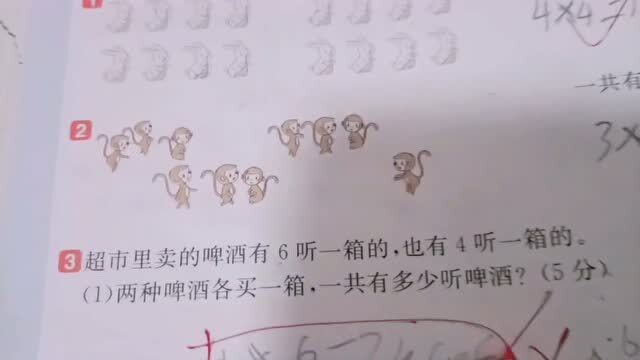 1
4×4=1
一共有
2
3×
3 超市里卖的啤酒有 6 听一箱的，也有 4 听一箱的。
(1)两种啤酒各买一箱，一共有多少听啤酒？(5 分)